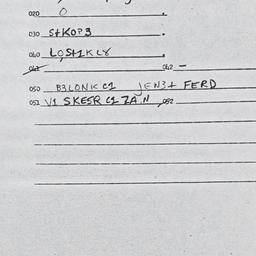 020 O .
030 StKOP3 .
040 LOSt1KL8 .
042 –
050 B3LONK C1 JEN3t FERD
051 V1 SKESR C1 ZAN 052